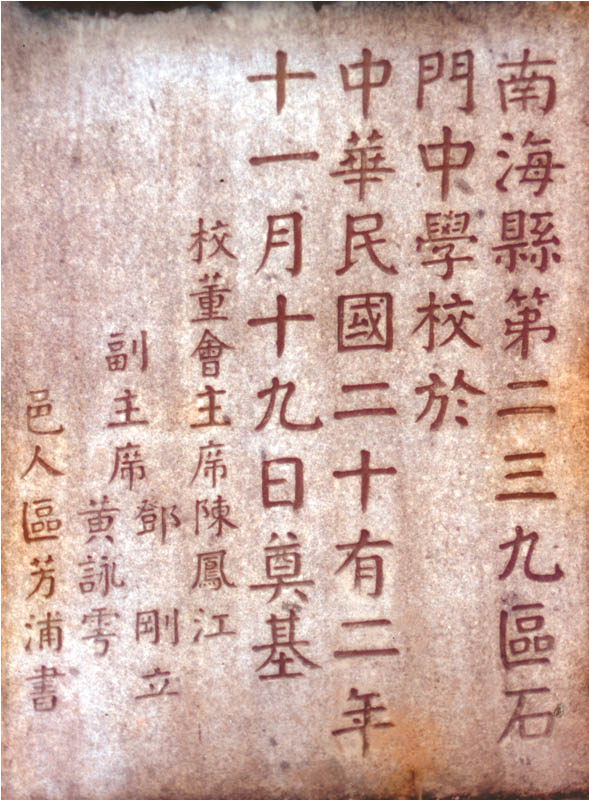 南海縣第二三九區石
門中學校於
中華民國二十有二年
十一月十九日奠基
校董會主席陳鳳江
副主席鄧剛立
黃詠雩
邑人區芳浦書